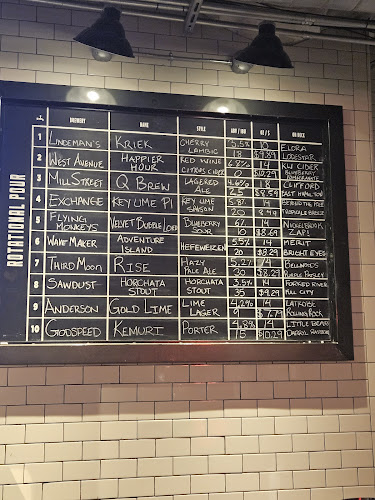 ROTATIONAL POUR
BREWERY NAME STYLE ABV / IBU OZ / $ ON DECK
1 LINDEMAN'S KRIEK CHERRY LAMBIC 3.5% 10 ELORA
2 WEST AVENUE HAPPIER HOUR RED WINE CITRUS CIDER 6.8% 14 KW CIDER
3 MILL STREET Q BREW LAGERED ALE 4.6% 18 CLIFFORD
4 EXCHANGE KEY LIME PI KEY LIME SAISON 14 BEHIND THE ICE
20 8.49
5 FLYING MONKEYS VELVET BUBBLE LORD BLUEBERRY SOUR 14 NICKELBROOK
10 $8.69
6 WAVE MAKER ADVENTURE ISLAND HEFEWEIZEN 5.5% 14 MERIT
20 $8.29 BRIGHT EYES
7 THIRD MOON RISE HAZY PALE ALE 5.2% 14 BELLWOODS
30 $8.29 PURPLE PARSLEY
8 SAWDUST HORCHATA STOUT HORCHATA STOUT 3.5% 14 FORKED RIVER
35 $9.29 FULL CITY
9 ANDERSON GOLD LIME LIME LAGER 4.2% 14
9 $7.79 ROLLING ROCK
10 GODSPEED KEMURI PORTER 4.8% 14 LITTLE BEASTS
15 $10.29